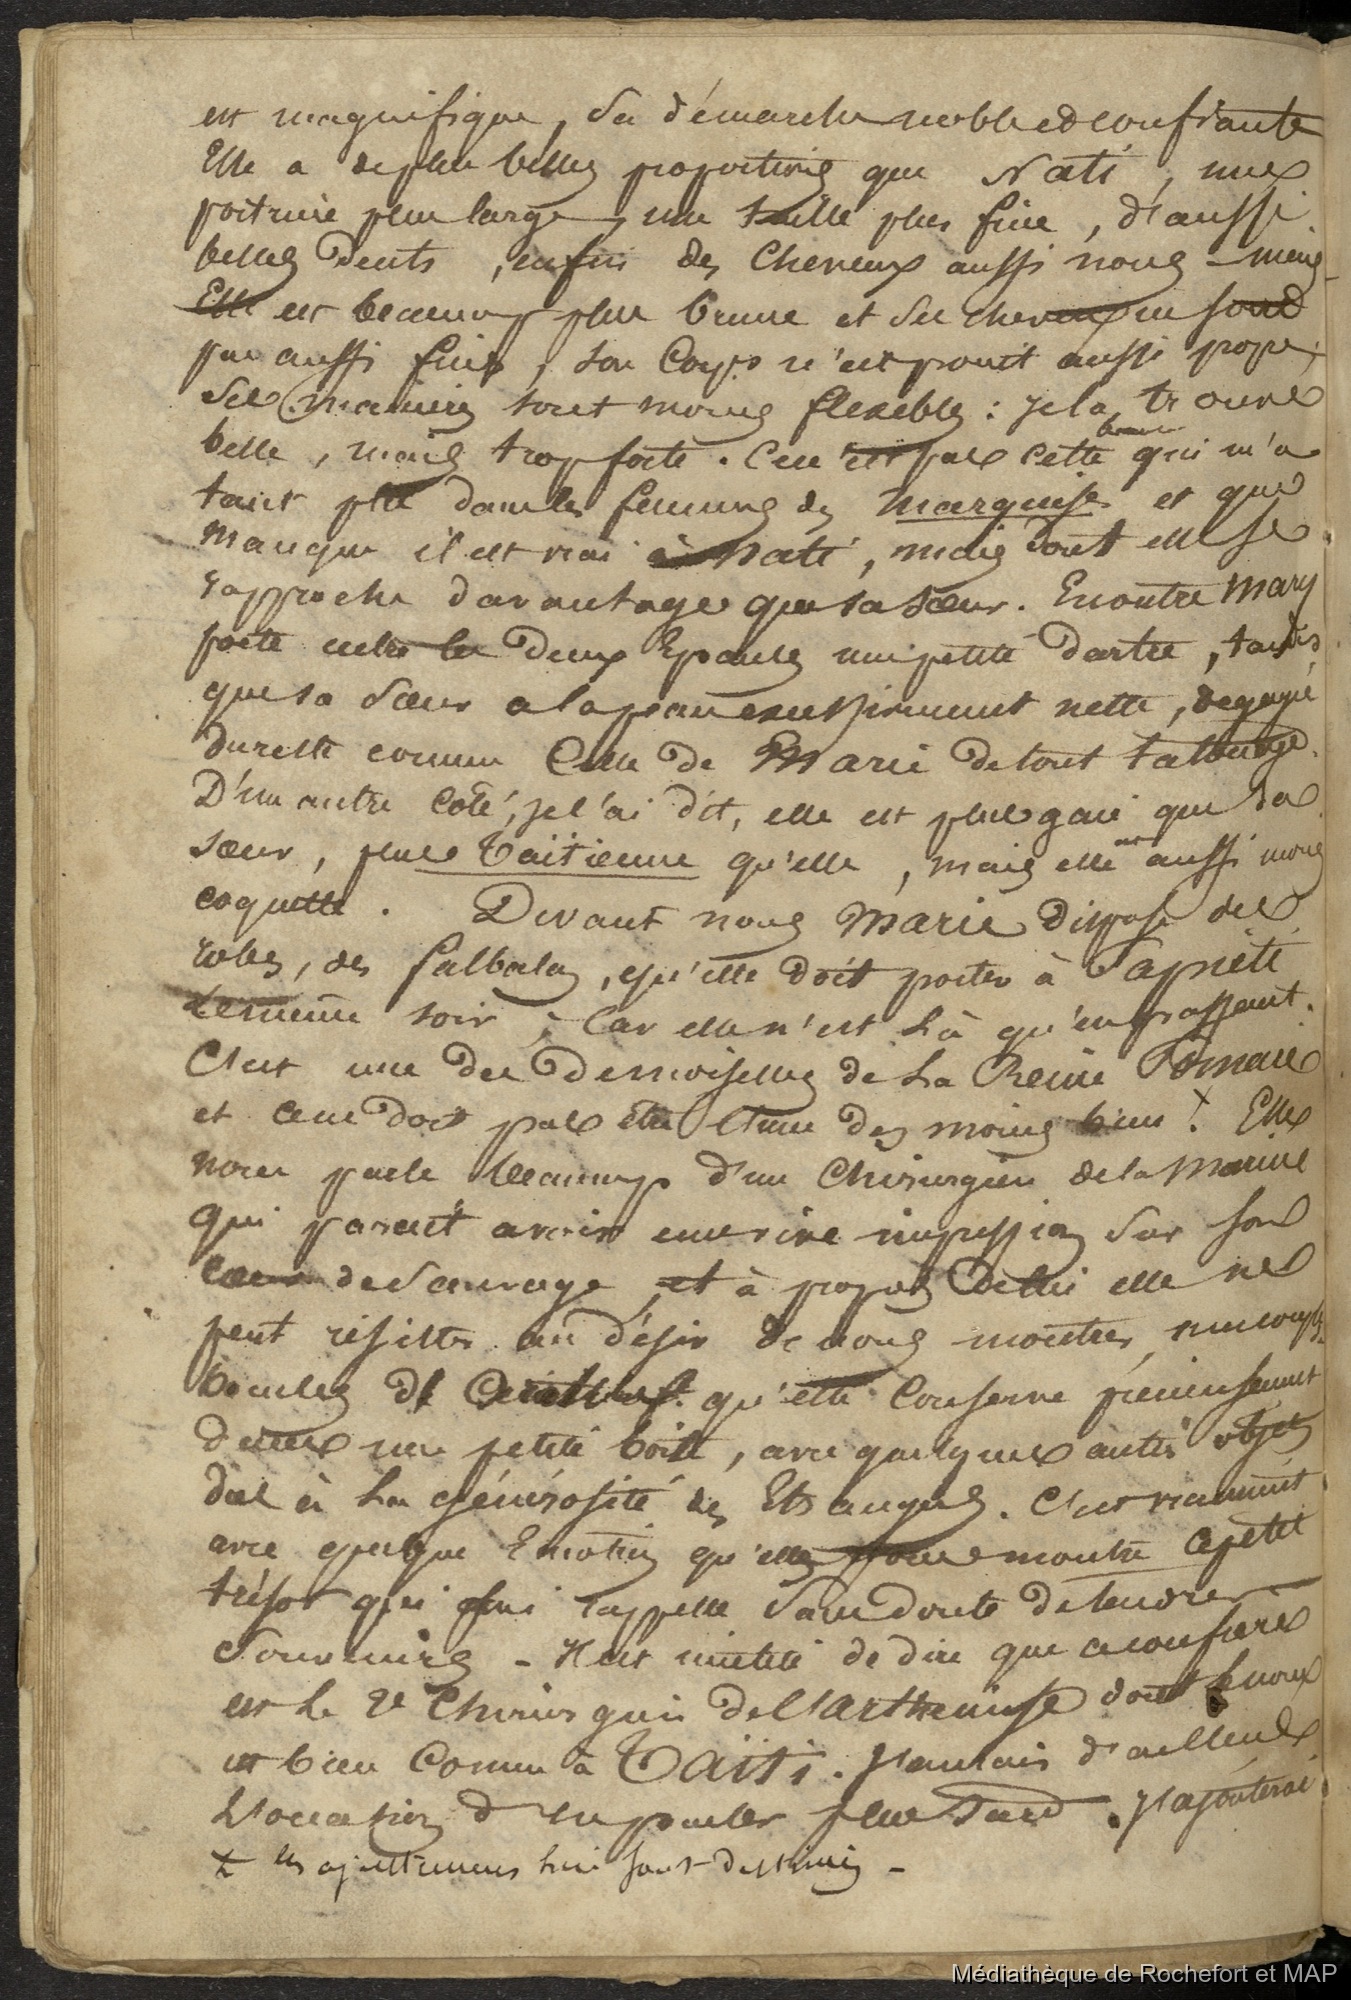 est magnifique, sa démarche noble et confiante
Elle a de plus belles proportions que Nati, une
poitrine plus large, une taille plus fine, d'aussi
belles dents, enfin des cheveux aussi noirs - mais
Elle est beaucoup plus brune et ses cheveux ne sont
pas aussi fins, son corps n'est point aussi propre,
Ses manières sont moins flexibles : je la trouve
belle, mais trop forte. Ce n'est pas cette qui m'a
tant plu dans les femmes des Marquises et qui
manque il est vrai à Nati, mais dont elle se
rapproche davantage que sa sœur. En outre Mary
porte entre les deux Epaules une petite dartre, tandis
que sa sœur a la peau excessivement nette, dégagée
du reste comme celle de Marie de tout tatouage.
D'un autre côté, je l'ai dit, elle est plus gaie que sa
sœur, plus Taïtienne qu'elle, mais elle est aussi moins
coquette. Devant nous Marie dispose des
robes, des falbalas, qu'elle doit porter à Papriété
le même soir, Car elle n'est là qu'en passant.
C'est une des Demoiselles de La Reine Pomaré
et ce ne doit pas être l'une des moins bien ! x Elle
nous parle beaucoup d'un Chirurgien de la Marine
qui paraît avoir une vive impression sur son
cœur de Sauvage, et à propos de lui elle ne
peut résister au désir de nous montrer,
boucles de qu'elle conserve précieusement
dans une petite boite, avec quelques autres objets
dus à la générosité des Etrangers. C'est vraiment
avec quelque Emotion qu'elle nous montre ce petit
trésor qui lui rappelle sans doute de tendres
Souvenirs - Il est inutile de dire que ce confrère
est le 2e Chirurgien de l'Arthémise dont le nom
est bien Connu à Taïti. J'aurais d'ailleurs
l'occasion d'en parler plus tard. J'ajouterai
x les ajustemens lui sont destinés -
Médiathèque de Rochefort et MAP